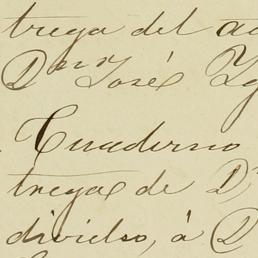 trega del
Dn José
Cuaderno
trega de D.
dividso, á D